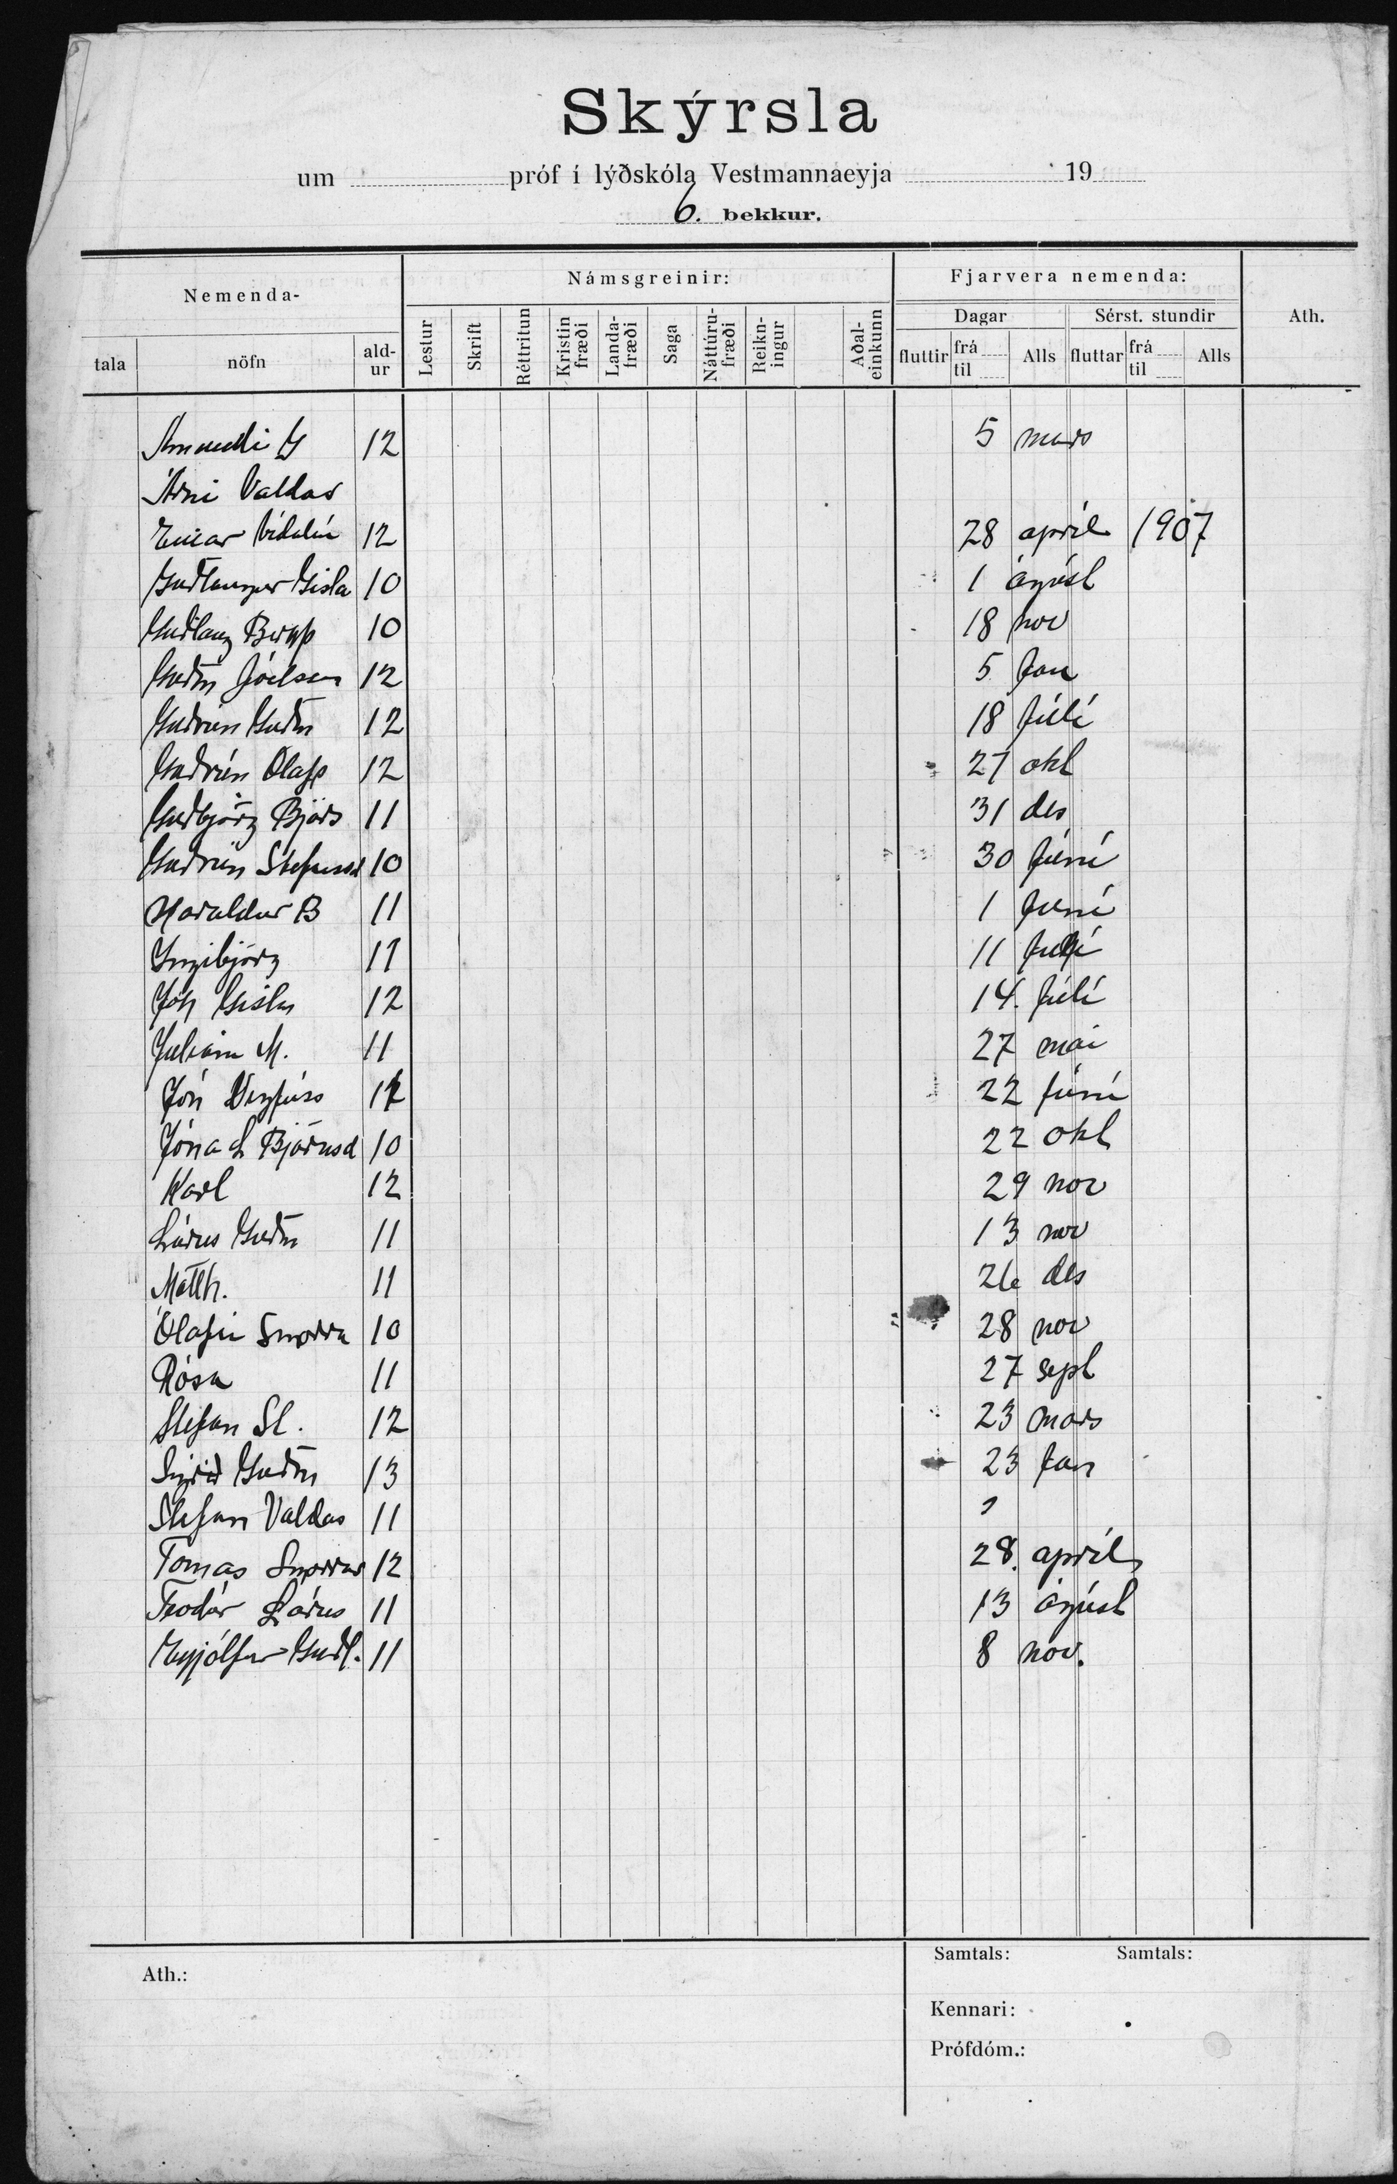 Skýrsla
um próf í lýðskóla Vestmannaeyja 19
6. bekkur.
Nemenda- Námsgreinir: Fjarvera nemenda: Ath.
Dagar Sérst. stundir
tala nöfn ald-ur Lestur Skrift Réttritun Kristin fræði Landa-fræði Saga Náttúru-fræði Reikn-ingur Aðal-einkunn fluttir frá til Alls fluttar frá til Alls
Ámundi G 12 5 mars
Árni Valdas
Einar Vídalín 12 28 apríl 1907
Guðlaugur Gísla 10 1 ágúst
Guðlaug 10 18 nov
Guðm Jóelsson 12 5 Jan
Guðrún Guðm 12 18 Júlí
Guðrún Ólafs 12 27 okt
Guðbjörg Björs 11 31 des
Guðrún Stefánsd 10 30 Júní
Haraldur B 11 1 Júní
Ingibjörg 11 11
Jón Gíslas 12 14. Júlí
Júlíana M. 11 27 mai
Jón Vigfúss 22 júní
Jóna L Björnsd 10 22 okt
Karl 12 29 nov
Lárus Guðm 11 13 nov
Matth. 11 26 des
Ólafía Snorra 10 28 nov
Rósa 11 27 sept
Stefán St. 12 23 mars
Sigríð Guðm 13 23 Jan
Stefán Valdas 11 1
Tomas Snorras 12 28. apríl
Teodór Lárus 11 13 ágúst
Eyjólfur Guðl. 11 8 nov.
Samtals: Samtals:
Ath.:
Kennari:
Prófdóm.: